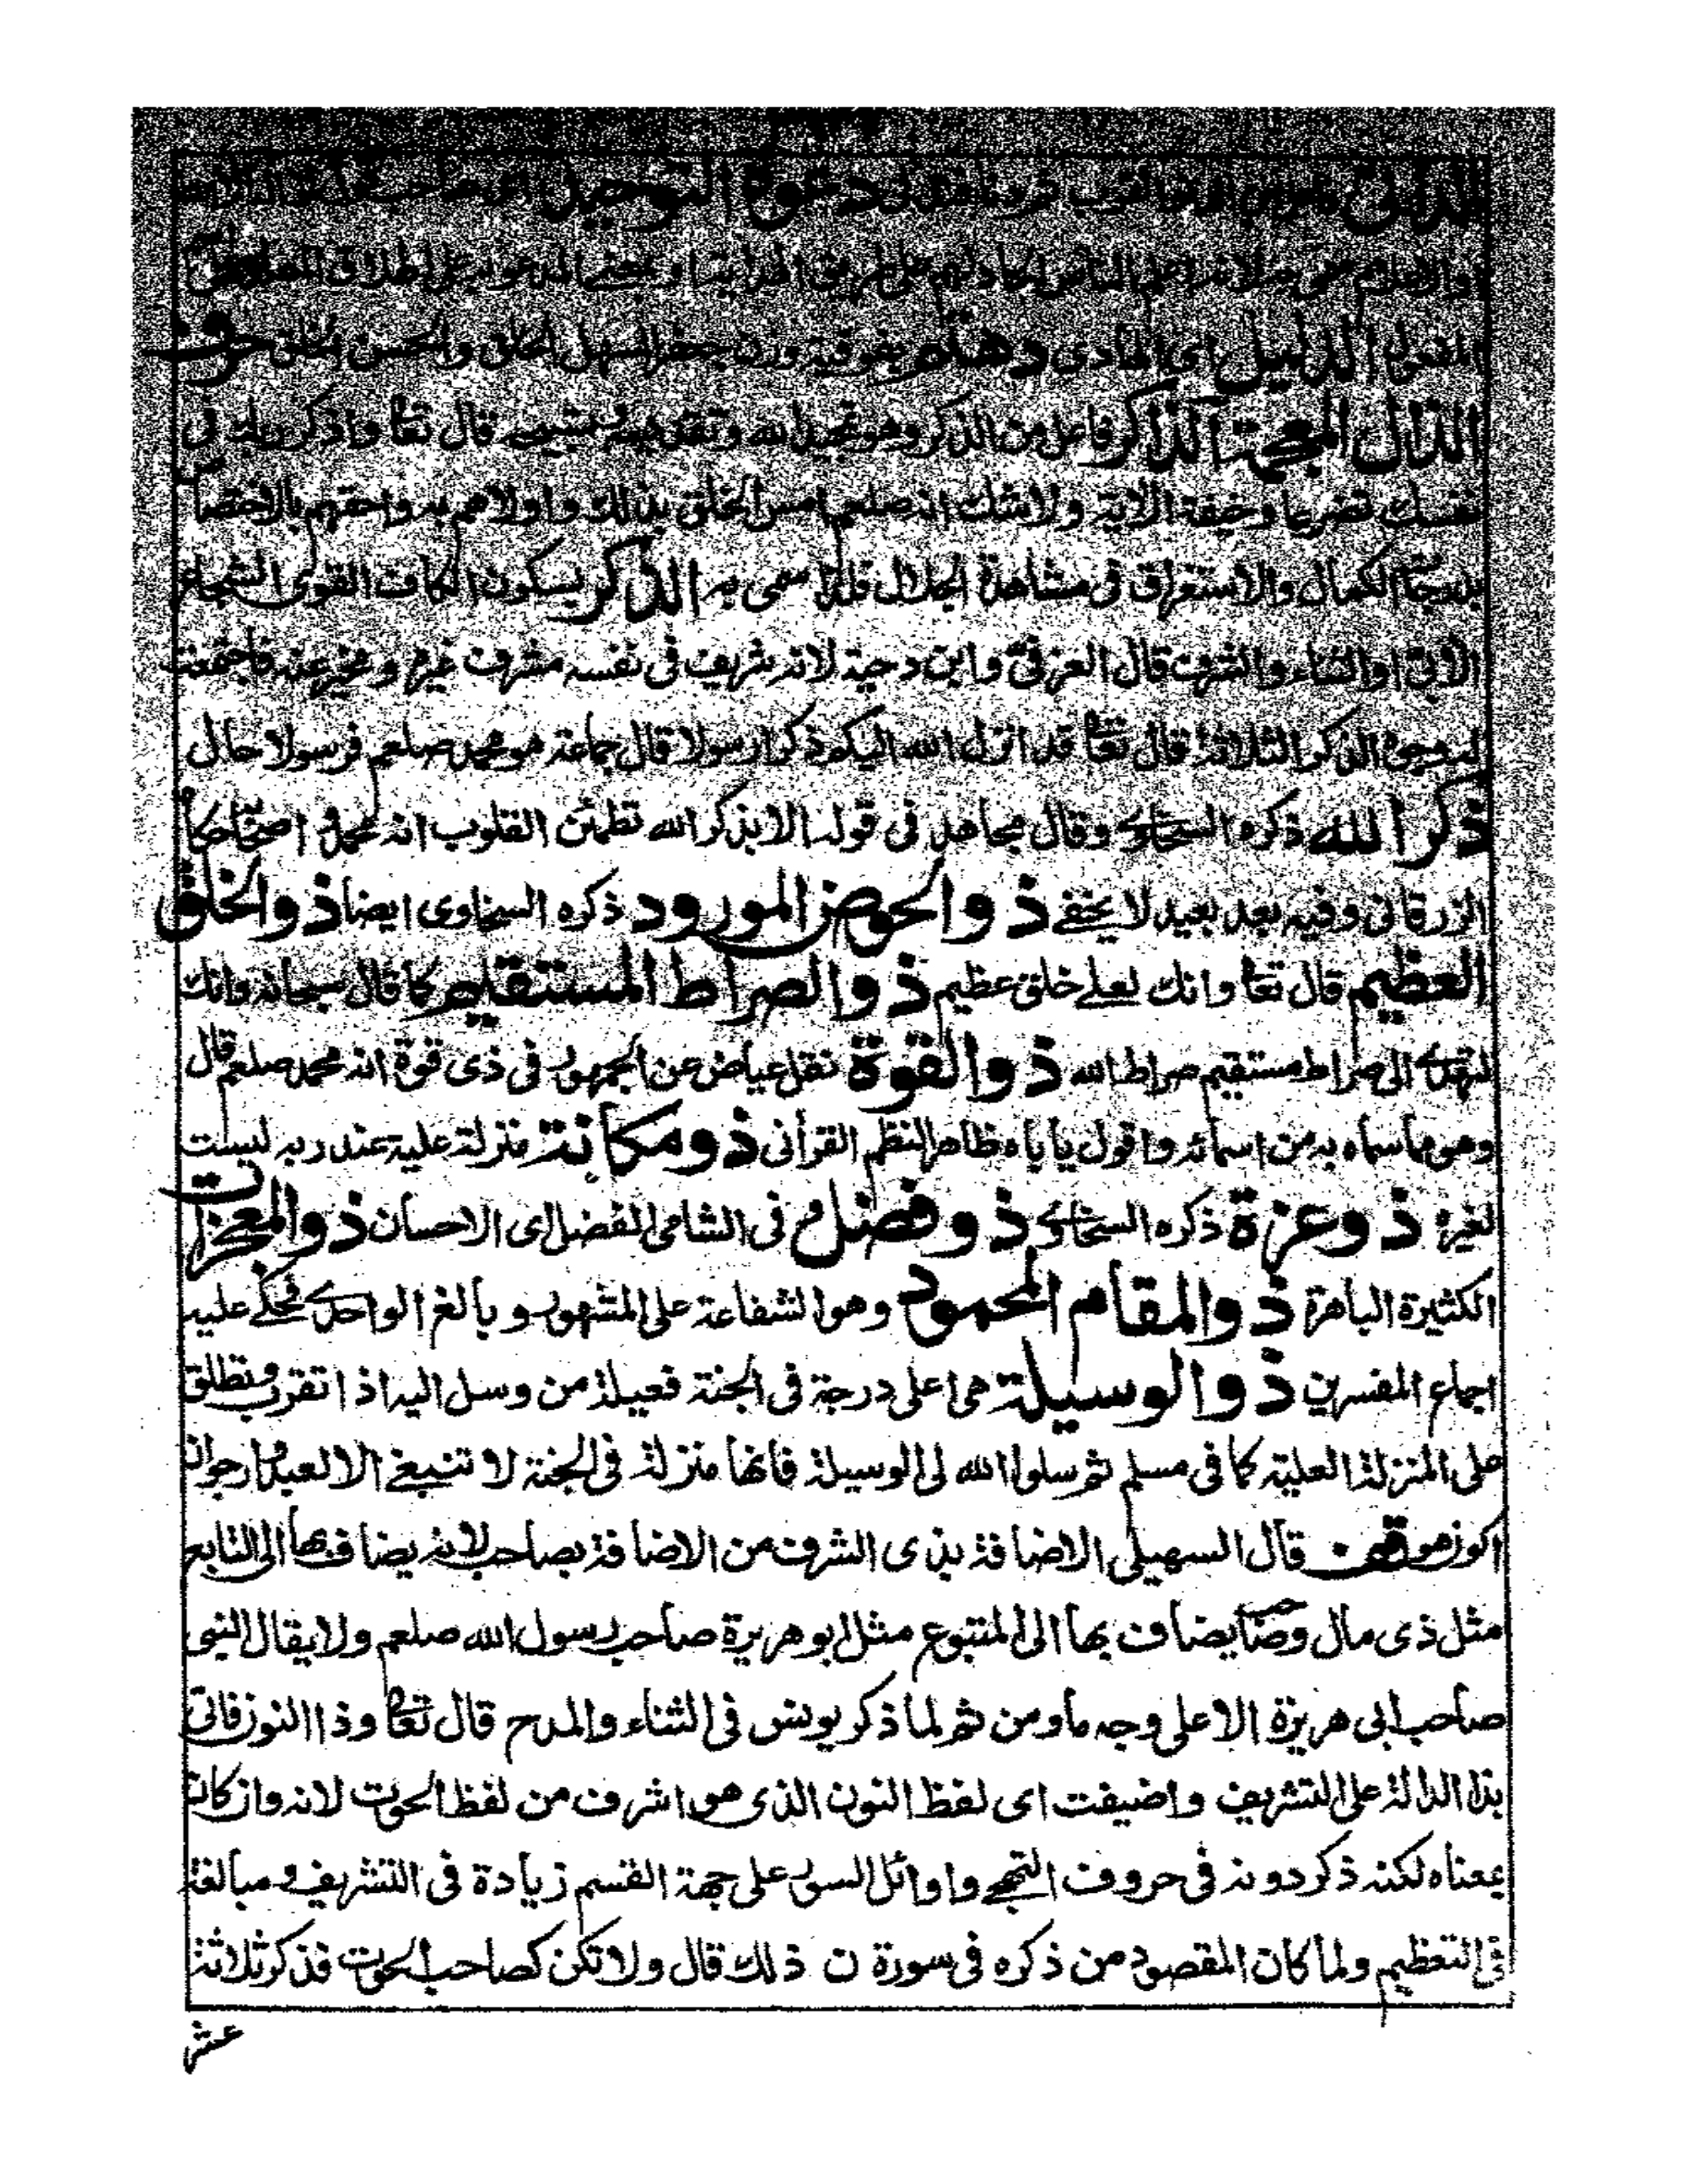 دعوة التوحيد
الدليل اى الهادى دهتم
الذال المعجمة الذاكر فاعل من الذكر وهو تمجيد الله وتقديسه وتسبيحه قال تعا واذكر ربك فى
نفسك تضرعا وخيفة الاية ولا شك انه صلعم امس الخلق بذلك واولاهم به واحقهم بالاختصا
بدرجتا الكمال والاستغراق فى مشاهدة الجلال فلذا سمى به الذكر بسكون الكاف القوى الشجاع
الابى او الثناء والشرف قال العزفى وابن دحية لانه شريف فى نفسه مشرف غيره ومخبر عنه فاجتمعت
له وجوه الذكر الثلاثة قال تعا قد انزل الله اليكم ذكرا رسولا قال جماعة هو محمد صلعم فرسولا حال
ذكر الله ذكره السخاوى وقال مجاهد فى قوله الا بذكر الله تطمئن القلوب انه محمد و اصحابه حكاه
الزرقانى وفيه بعد بعيد لا يخفى ذو الحوض المورود ذكره السخاوى ايضا ذو الخلق
العظيم قال تعا وانك لعلى خلق عظيم ذو الصراط المستقيم كما قال سبحانه وانك
لتهدى الى صراط مستقيم صراط الله ذو القوة نقل عياض عن الجمهور فى ذى قوة انه محمد صلعم قال
وهو مما سماه به من اسمائه واقول ياباه ظاهر النظم القرأنى ذو مكانة منزلة علية عند ربه ليست
لغيره ذو عزة ذكره السخاوى ذو فضل فى الشامى الفضل اى الاحسان ذو المعجزات
الكثيرة الباهرة ذو المقام المحمود وهو الشفاعة على المشهور وبالغ الواحدى فحكى عليه
اجماع المفسرين ذو الوسيلة هى اعلى درجة فى الجنة فعيلة من وسل اليه اذا تقرب وتطلق
على المنزلة العلية كما فى مسلم ثم سلوا الله لى الوسيلة فانها منزلة فى الجنة لا تنبغى الا لعبد وارجو انه
اكون هو قف قال السهيلى الاضافة بذى الشرف من الاضافة بصاحب لانه يضاف بها الى التابع
مثل ذى مال وصا يضاف بها الى المتبوع مثل ابو هريرة صاحب رسول الله صلعم ولا يقال النبى
صاحب ابى هريرة الا على وجه ما ومن ثم لما ذكر يونس فى الثناء والمدح قال تعا وذا النون فاتى
بذا الدالة على التشريف واضيفت اى لفظ النون الذى هو اشرف من لفظ الحوت لانه وان كان
بمعناه لكنه ذكر دونه فى حروف التهجى واوائل السور على جهة القسم زيادة فى التشريف ومبالغة
فى التعظيم ولما كان المقصود من ذكره فى سورة ن ذلك قال ولا تكن كصاحب الحوت فذكر ثلاثة
عشر